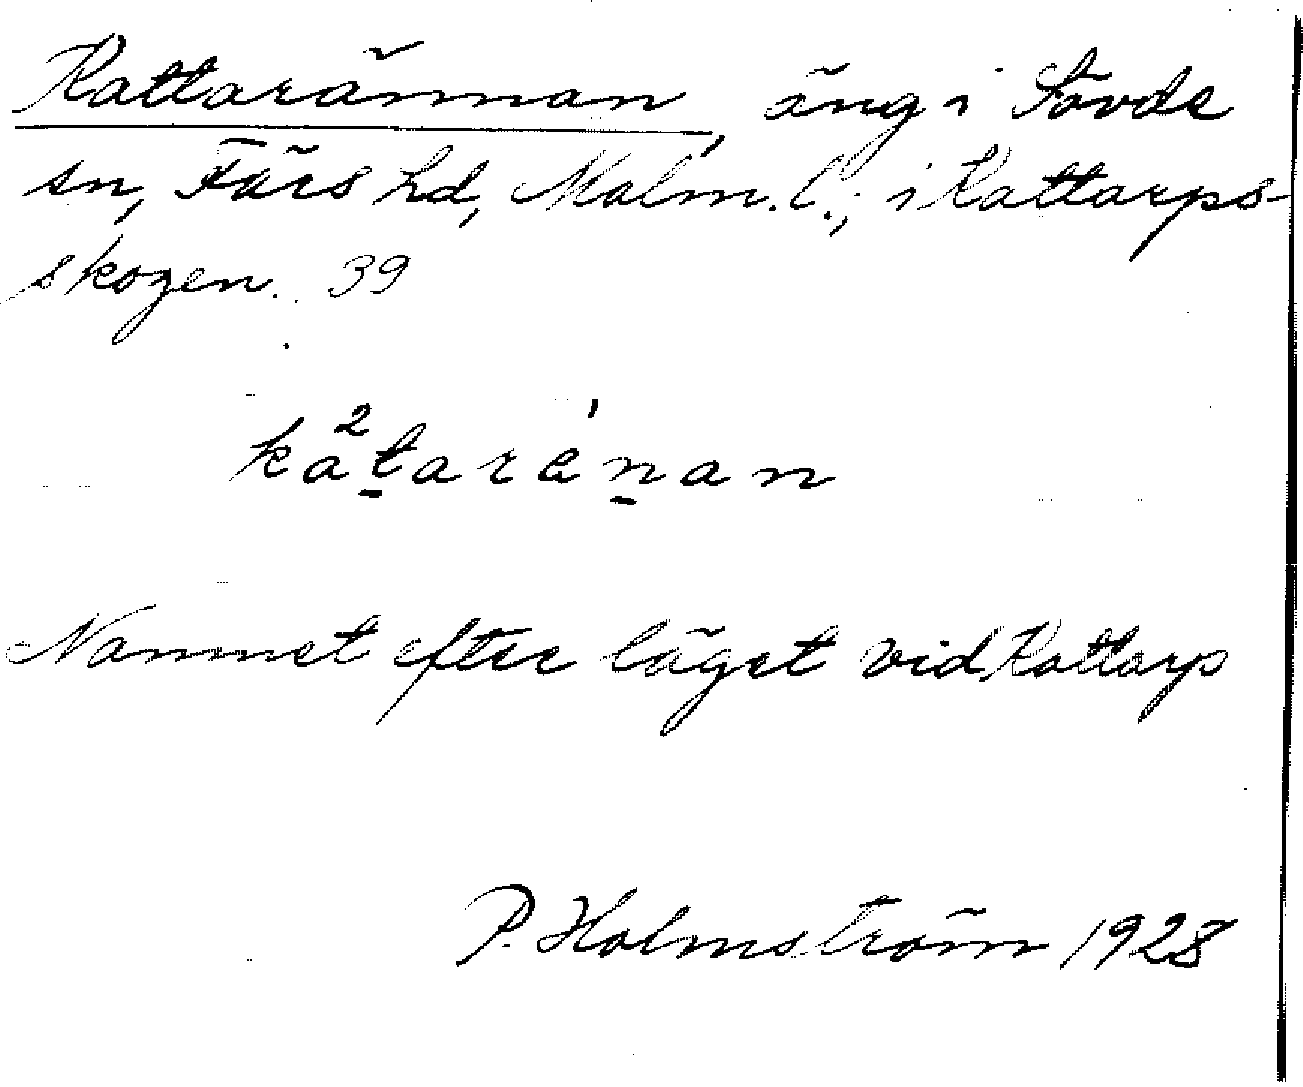 Kattarännan, äng i Sövde
sn, Färs hd, Malm. l.; i Kattarps-
skogen. 39
kå²t̠aré'n̠an
Namnet efter läget vid Kattarp
P. Holmström 1928